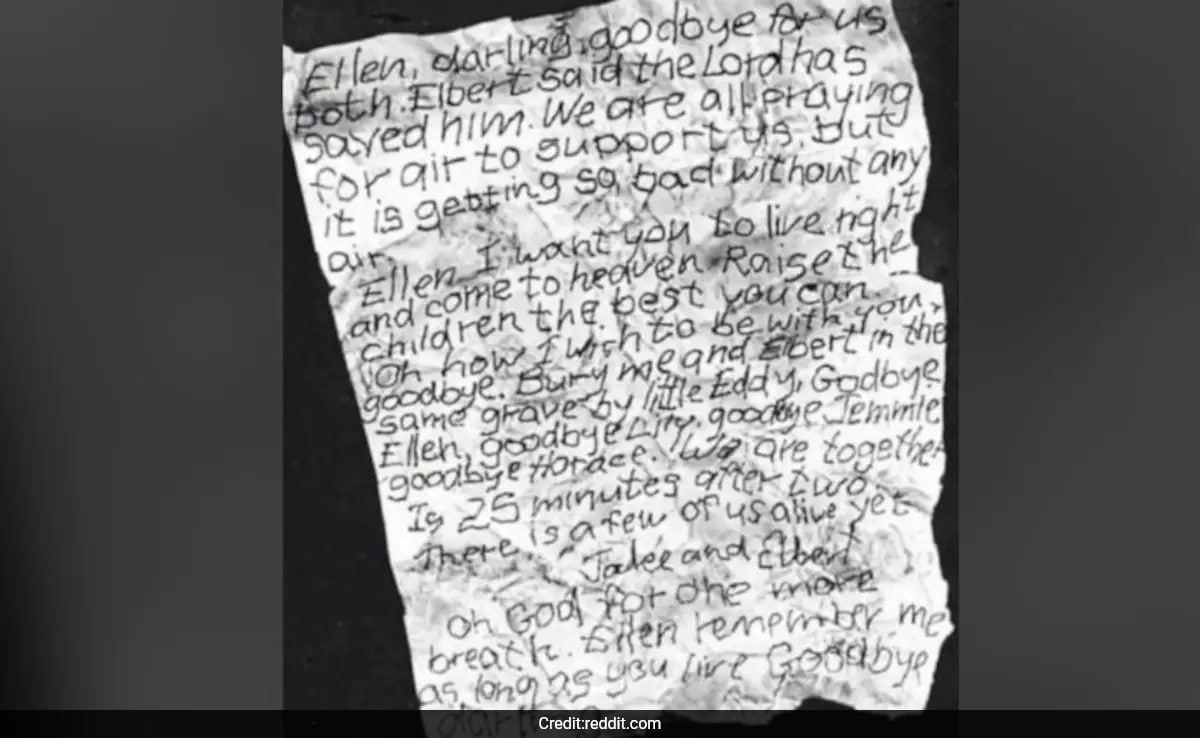 Ellen, darling, goodbye for us
both. Elbert said the Lord has
saved him. We are all praying
for air to support us, but
it is getting so bad without any
air.
Ellen I want you to live right
and come to heaven Raise the
children the best you can.
Oh how I wish to be with you,
goodbye. Bury me and Elbert in the
same grave by little Eddy, Godbye
Ellen, goodbye Lily, goodbye Jemmie
goodbye Horace. We are together
Is 25 minutes after two.
There is a few of us alive yet
Jake and Elbert
oh God for one more
breath. Ellen remember me
as long as you live Goodbye
darling
Credit:reddit.com